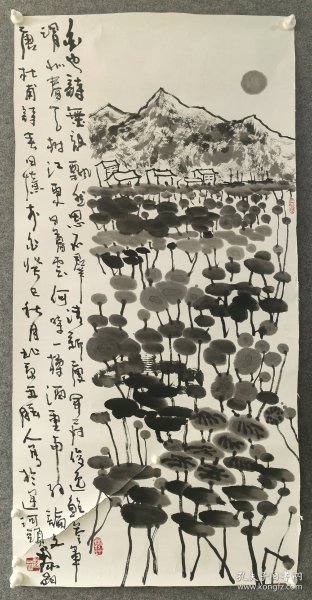 白也詩無敵飄然思不群清新庾開府俊逸鮑參軍
渭北春天樹江東日暮雲何時一樽酒重與細論文
唐杜甫詩春日憶李白癸巳秋月北京人寫於運河頭